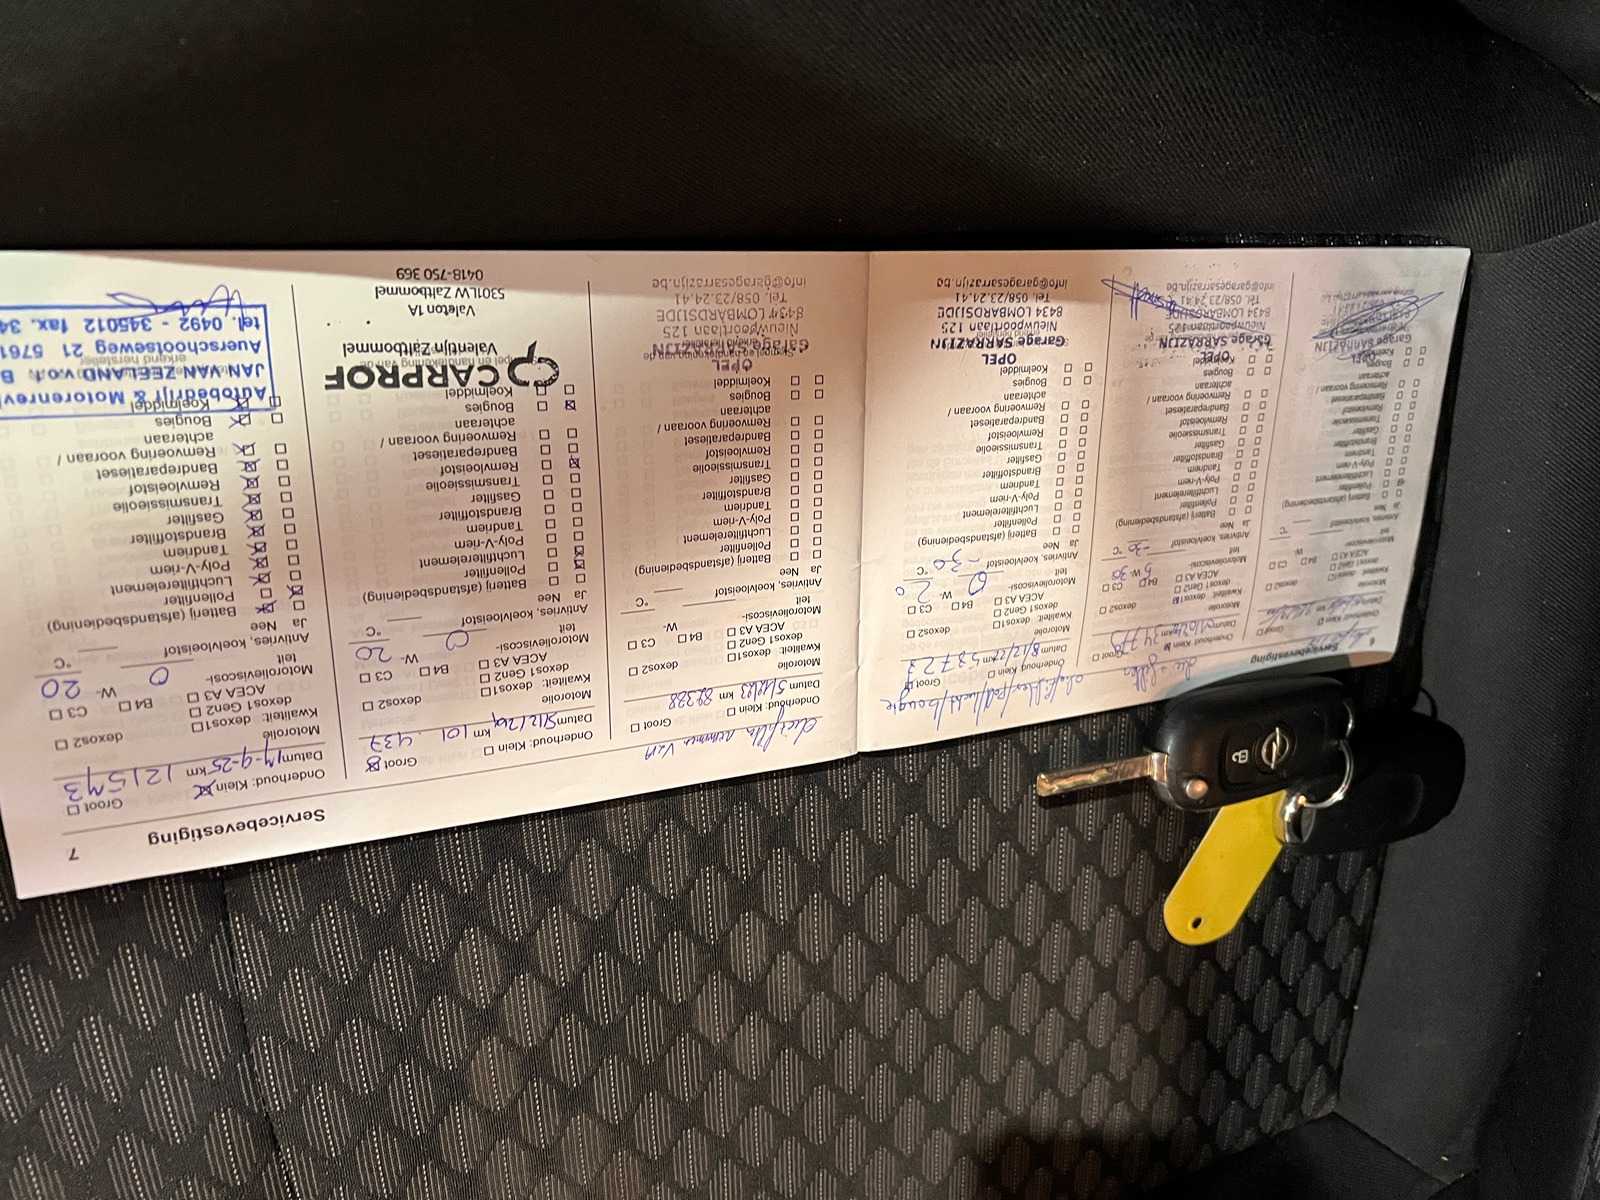 6
Servicebevestiging
Onderhoud: Klein
Groot
Datum
km
Motorolie
Kwaliteit:
dexos1 Gen2
dexos2
ACEA A3
B4
C3
Motorolieviscosi-
teit
W-
Antivries, koelvloeistof
°C
Ja Nee
Batterij (afstandsbediening)
Pollenfilter
Luchtfilterelement
Poly-V-riem
Tandriem
Brandstoffilter
Gasfilter
Transmissieolie
Remvloeistof
Bandreparatieset
Remvoering vooraan /
achteraan
Bougies
Koelmiddel
OPEL
Garage SARRAZIJN
Onderhoud: Klein
Groot
Datum
km 34775
Motorolie
Kwaliteit: dexos1
dexos1 Gen2
dexos2
ACEA A3
B4
C3
Motorolieviscosi-
teit
5 W- 30
Antivries, koelvloeistof
-30 °C
Ja Nee
Batterij (afstandsbediening)
Pollenfilter
Luchtfilterelement
Poly-V-riem
Tandriem
Brandstoffilter
Gasfilter
Transmissieolie
Remvloeistof
Bandreparatieset
Remvoering vooraan /
achteraan
Bougies
Koelmiddel
OPEL
Garage SARRAZIJN
Nieuwpoortlaan 125
8434 LOMBARDSIJDE
Tel. 058/23.24.41
info@garagesarrazijn.be
Onderhoud: Klein
Groot
Datum
km 53723
Motorolie
Kwaliteit: dexos1
dexos1 Gen2
dexos2
ACEA A3
B4
C3
Motorolieviscosi-
teit
0 W- 20
Antivries, koelvloeistof
-30 °C
Ja Nee
Batterij (afstandsbediening)
Pollenfilter
Luchtfilterelement
Poly-V-riem
Tandriem
Brandstoffilter
Gasfilter
Transmissieolie
Remvloeistof
Bandreparatieset
Remvoering vooraan /
achteraan
Bougies
Koelmiddel
OPEL
Garage SARRAZIJN
Nieuwpoortlaan 125
8434 LOMBARDSIJDE
Tel. 058/23.24.41
info@garagesarrazijn.be
Servicebevestiging
7
Onderhoud: Klein
Groot
Datum 5/12/23 km 82328
Motorolie
Kwaliteit: dexos1
dexos1 Gen2
dexos2
ACEA A3
B4
C3
Motorolieviscosi-
teit
W-
Antivries, koelvloeistof
°C
Ja Nee
Batterij (afstandsbediening)
Pollenfilter
Luchtfilterelement
Poly-V-riem
Tandriem
Brandstoffilter
Gasfilter
Transmissieolie
Remvloeistof
Bandreparatieset
Remvoering vooraan /
achteraan
Bougies
Koelmiddel
OPEL
Garage SARRAZIJN
Nieuwpoortlaan 125
8434 LOMBARDSIJDE
Tel. 058/23.24.41
info@garagesarrazijn.be
Onderhoud: Klein
Groot
Datum 5/12/24 km 101.437
Motorolie
Kwaliteit: dexos1
dexos1 Gen2
dexos2
ACEA A3
B4
C3
Motorolieviscosi-
teit
0 W- 20
Antivries, koelvloeistof
°C
Ja Nee
Batterij (afstandsbediening)
Pollenfilter
Luchtfilterelement
Poly-V-riem
Tandriem
Brandstoffilter
Gasfilter
Transmissieolie
Remvloeistof
Bandreparatieset
Remvoering vooraan /
achteraan
Bougies
Koelmiddel
CARPROF
Valentijn Zaltbommel
Valeton 1A
5301LW Zaltbommel
0418-750 369
Onderhoud: Klein
Groot
Datum 17-9-25 km 121543
Motorolie
Kwaliteit: dexos1
dexos1 Gen2
dexos2
ACEA A3
B4
C3
Motorolieviscosi-
teit
0 W- 20
Antivries, koelvloeistof
°C
Ja Nee
Batterij (afstandsbediening)
Pollenfilter
Luchtfilterelement
Poly-V-riem
Tandriem
Brandstoffilter
Gasfilter
Transmissieolie
Remvloeistof
Bandreparatieset
Remvoering vooraan /
achteraan
Bougies
Koelmiddel
Autobedrijf & Motorenrev
JAN VAN ZEELAND v.o.f. B
Auerschootseweg 21 5761
tel. 0492 - 345012 fax. 34